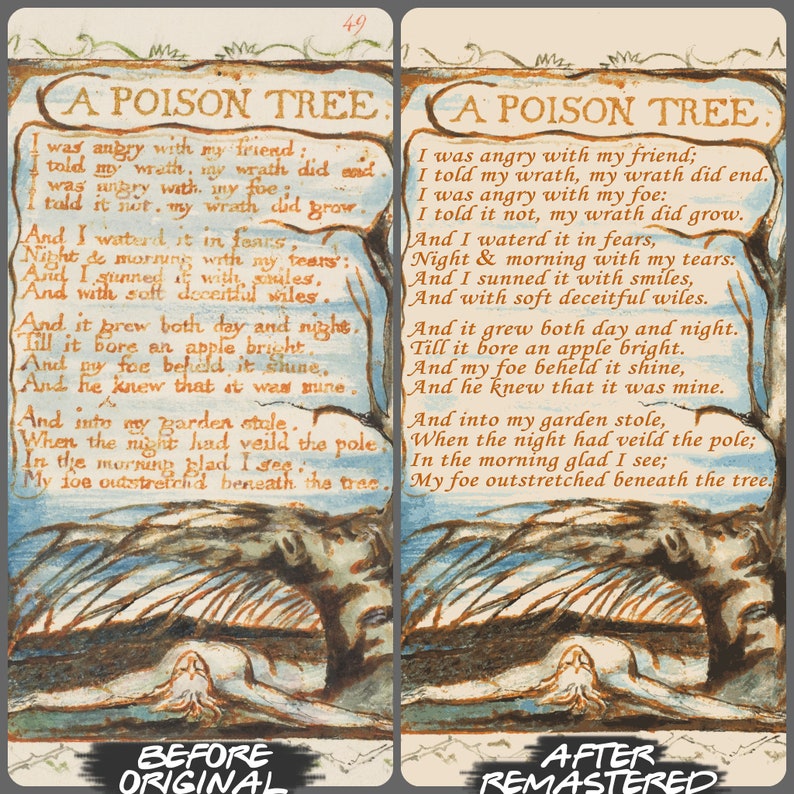 49
A POISON TREE.
I was angry with my friend:
I told my wrath, my wrath did end.
I was angry with my foe:
I told it not, my wrath did grow.
And I waterd it in fears,
Night & morning with my tears:
And I sunned it with smiles,
And with soft deceitful wiles.
And it grew both day and night,
Till it bore an apple bright.
And my foe beheld it shine,
And he knew that it was mine.
And into my garden stole,
When the night had veild the pole
In the morning glad I see,
My foe outstretchd beneath the tree.
BEFORE
ORIGINAL
A POISON TREE.
I was angry with my friend;
I told my wrath, my wrath did end.
I was angry with my foe:
I told it not, my wrath did grow.
And I waterd it in fears,
Night & morning with my tears:
And I sunned it with smiles,
And with soft deceitful wiles.
And it grew both day and night.
Till it bore an apple bright.
And my foe beheld it shine,
And he knew that it was mine.
And into my garden stole,
When the night had veild the pole;
In the morning glad I see;
My foe outstretched beneath the tree.
AFTER
REMASTERED